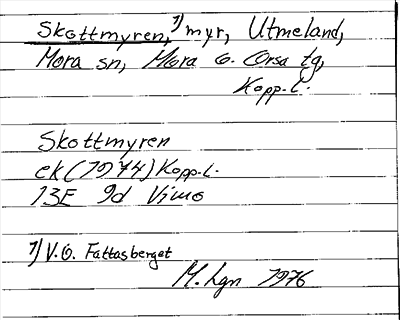 Skottmyren,¹⁾ myr, Utmeland,
Mora sn, Mora o. Orsa tg,
Kopp.l.
Skottmyren
ek (1974) Kopp.l.
13E 9d Vimo
¹⁾ V.O. Fattasberget
M. Lgn 1976